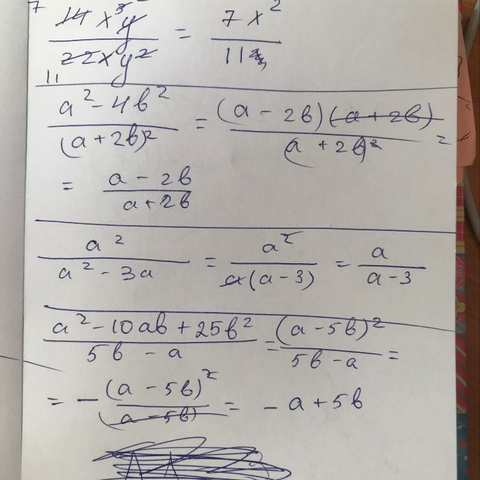 7
14x³y / 22xy² = 7x² / 11
11
a² - 4b² / (a + 2b)² = (a - 2b)(a + 2b) / (a + 2b)² =
= a - 2b / a + 2b
a² / a² - 3a = a² / a(a - 3) = a / a - 3
a² - 10ab + 25b² / 5b - a = (a - 5b)² / 5b - a =
= - (a - 5b)² / (a - 5b) = - a + 5b